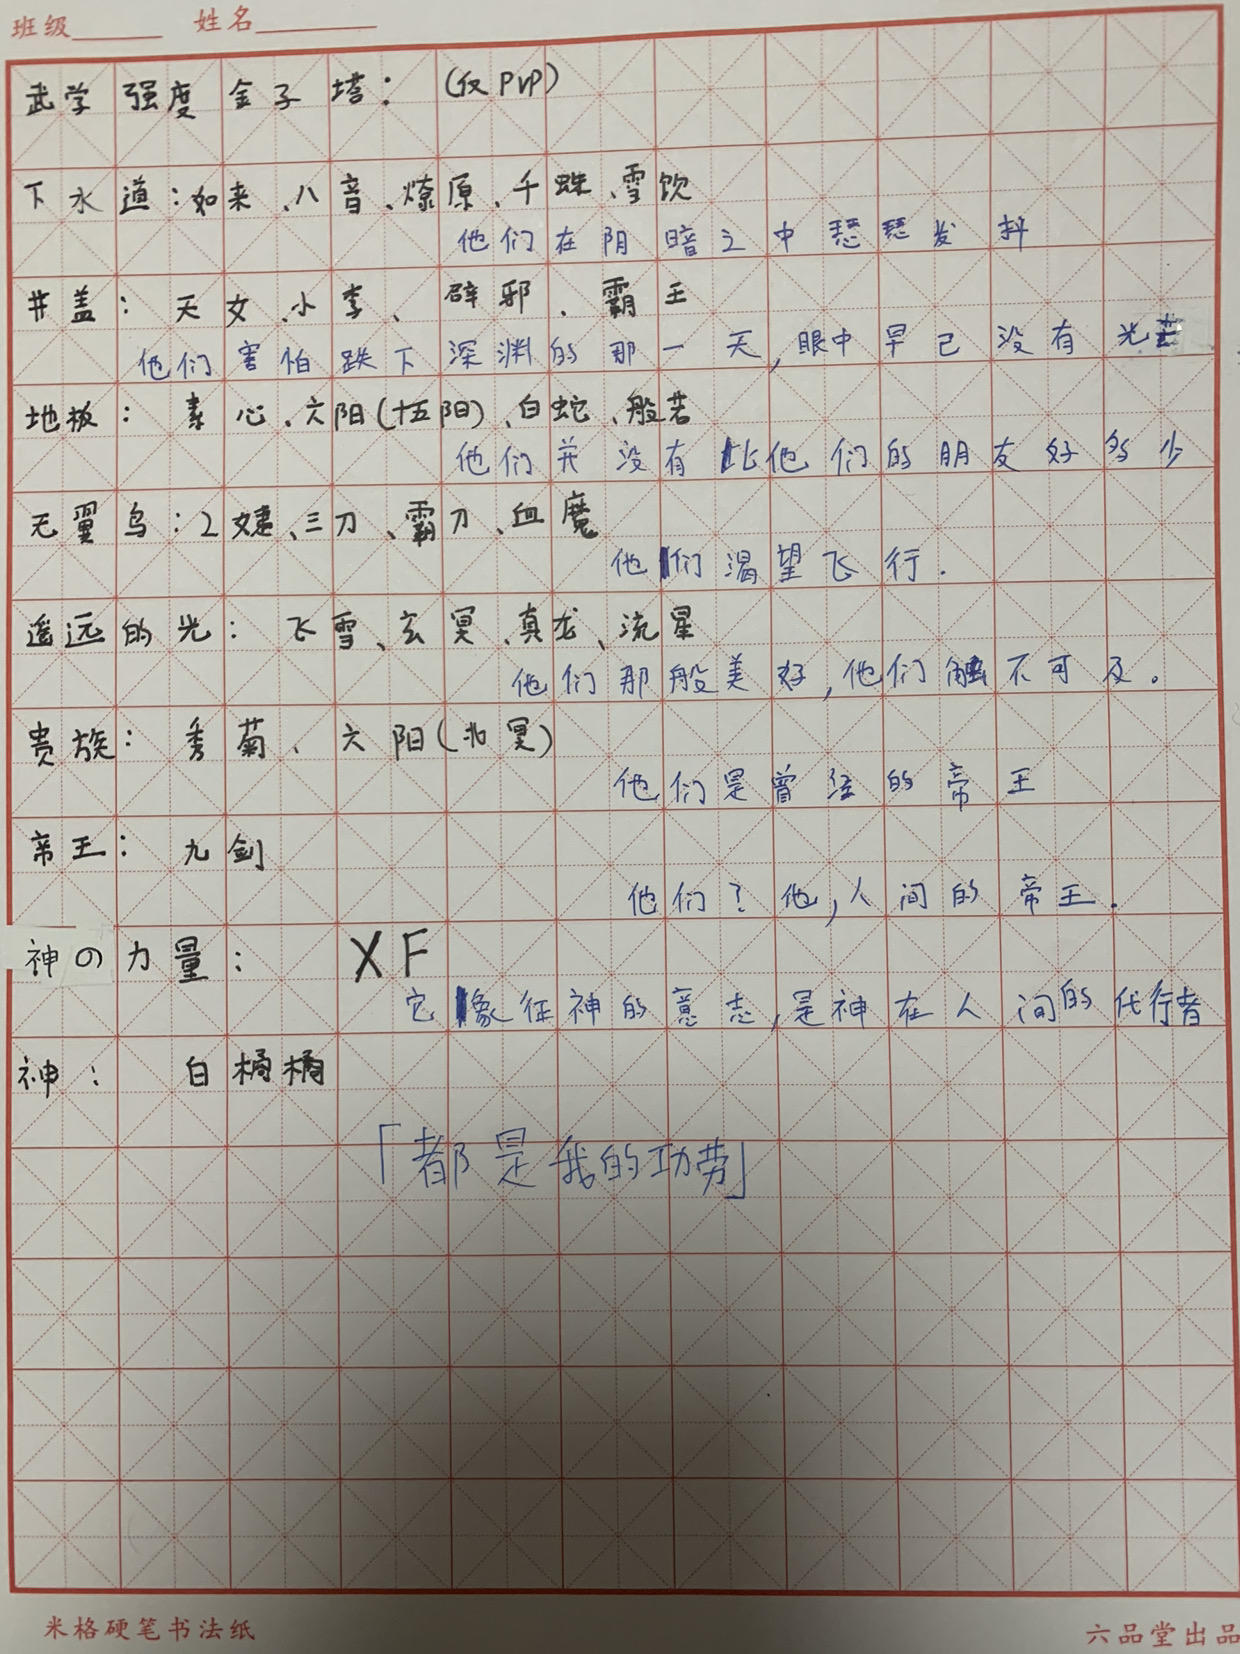 班级 姓名
武学强度金子塔：（仅PVP）
下水道：如来、八音、燎原、千蛛、雪饮
他们在阴暗之中瑟瑟发抖
井盖：天女、小李、辟邪、霸王
他们害怕跌下深渊的那一天，眼中早已没有光芒
地板：素心、六阳（十五阳）、白蛇、般若
他们并没有比他们的朋友好多少
无翼鸟：2、三刀、霸刀、血魔
他们渴望飞行.
遥远的光：飞雪、玄冥、真龙、流星
他们那般美好，他们触不可及。
贵族：秀菊、六阳（北冥）
他们是曾经的帝王
帝王：九剑
他们？他，人间的帝王.
神の力量：XF
它象征神的意志，是神在人间的代行者
神：白橘橘
「都是我的功劳」
米格硬笔书法纸 六品堂出品